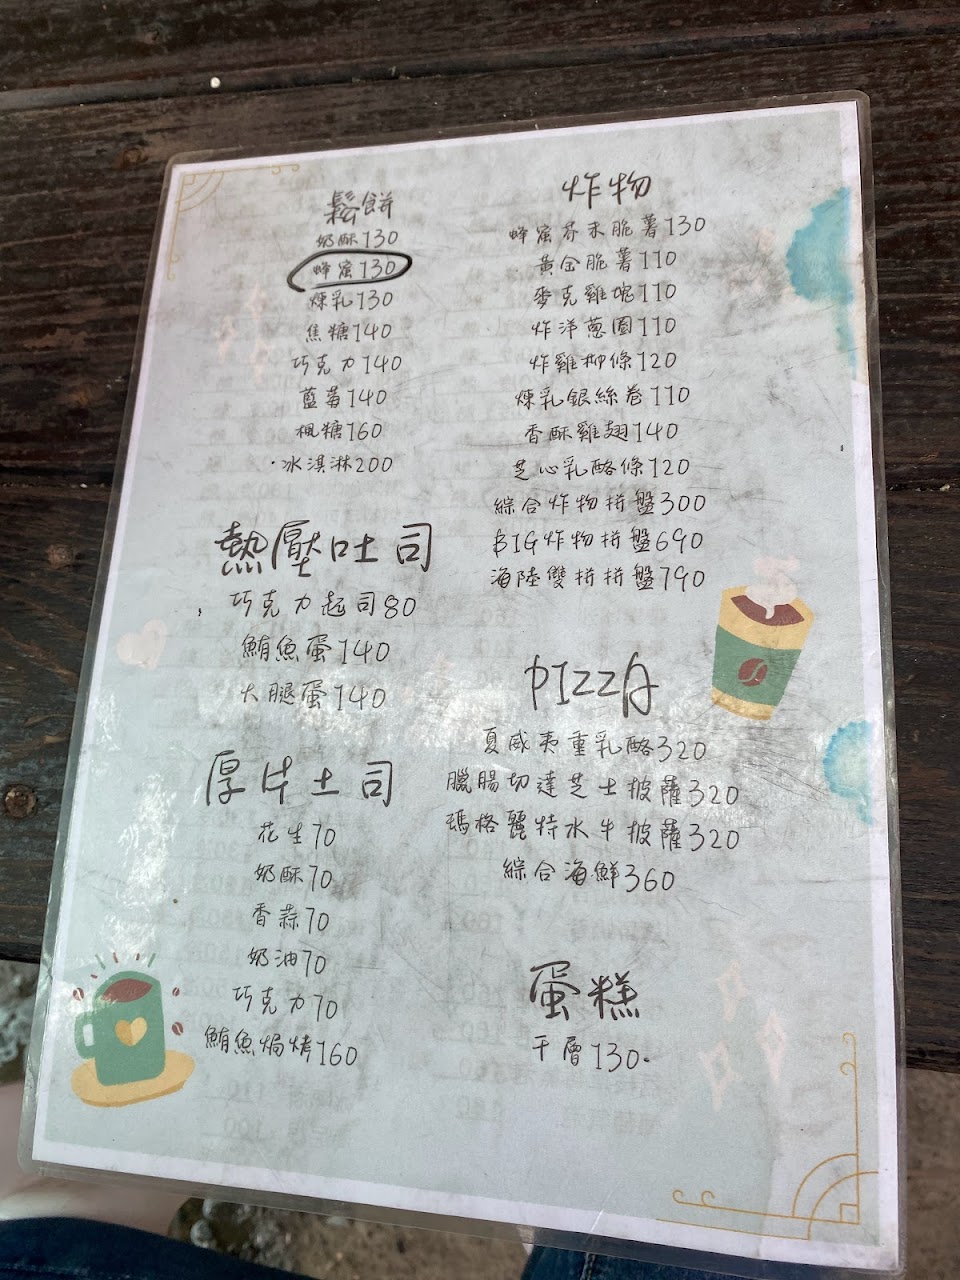 鬆餅
奶酥130
蜂蜜130
煉乳130
焦糖140
巧克力140
藍莓140
楓糖160
冰淇淋200
熱壓吐司
巧克力起司80
鮪魚蛋140
火腿蛋140
厚片土司
花生70
奶酥70
香蒜70
奶油70
巧克力70
鮪魚焗烤160
炸物
蜂蜜芥末脆薯130
黃金脆薯110
麥克雞塊110
炸洋蔥圈110
炸雞柳條120
煉乳銀絲卷110
香酥雞翅140
芝心乳酪條120
綜合炸物拼盤300
BIG炸物拼盤690
海陸雙拼拼盤790
PIZZA
夏威夷重乳酪320
臘腸切達芝士披薩320
瑪格麗特水牛披薩320
綜合海鮮360
蛋糕
千層130